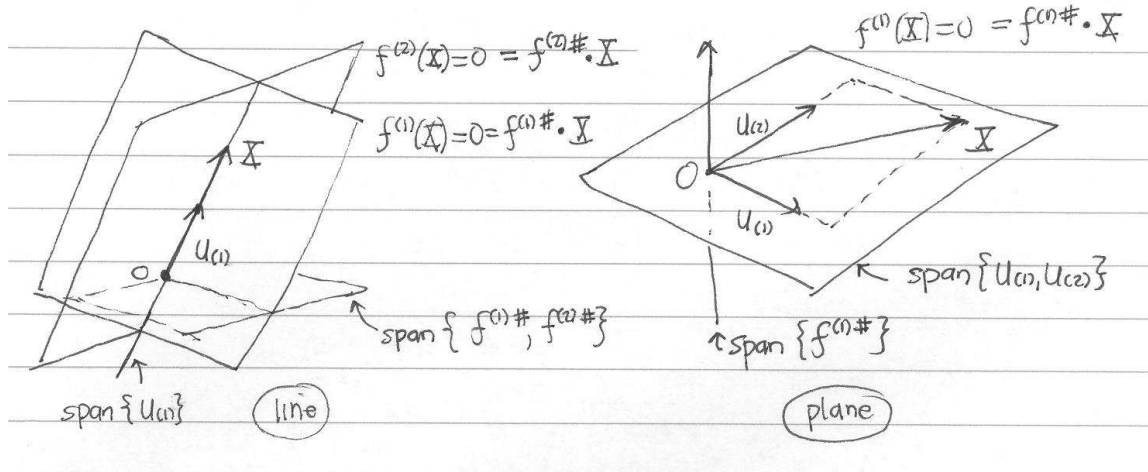 f⁽²⁾(X)=0 = f⁽²⁾♯·X
f⁽¹⁾(X)=0=f⁽¹⁾♯·X
X
u₍₁₎
O
span{f⁽¹⁾♯, f⁽²⁾♯}
span{u₍₁₎}
line
f⁽¹⁾(X)=0 = f⁽¹⁾♯·X
u₍₂₎
X
O
u₍₁₎
span{u₍₁₎, u₍₂₎}
span{f⁽¹⁾♯}
plane